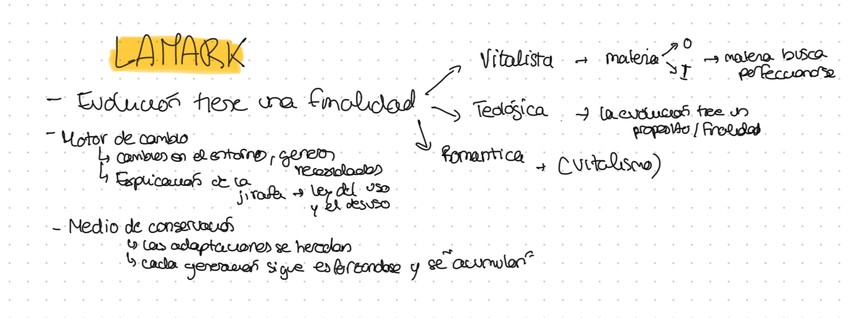 LAMARK
- Evolución tiene una finalidad
Vitalista → materia
O
I
→ materia busca
perfeccionarse
Teológica → La evolución tiene un
proposito / finalidad
Romantica → (vitalismo)
- Motor de cambio
↳ cambios en el entorno, generan
necesidades
↳ Explicación de la
jirafa → ley del uso
y el desuso
- Medio de conservación
↳ Las adaptaciones se heredan
↳ cada generación sigue esforzandose y se "acumulan"